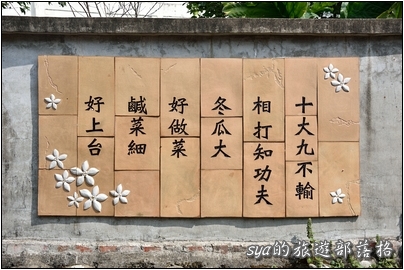 十大九不輸
相打知功夫
冬瓜大
好做菜
鹹菜細
好上台
sya的旅遊部落格